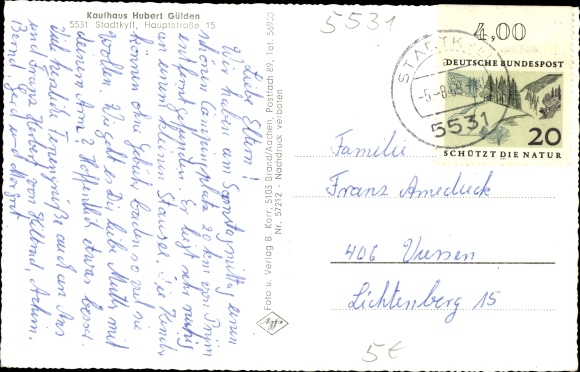 Kaufhaus Hubert Gülden
5531 Stadtkyll, Hauptstraße 15
Liebe Eltern!
Wir haben am Samstagmittag einen
schönen Campingplatz 20 km von Prüm
entfernt gefunden. Er liegt sehr ruhig
an einem kleinen Stausee. Die Kinder
können ohne Gebühr baden so viel sie
wollen. Wie geht es Dir liebe Mutti mit
deinem Arm? Hoffentlich etwas besser.
Viele herzliche Feriengrüße auch an
und Franz Herbert von Helmud, Achim,
Bernd, und Margret
Foto u. Verlag B. Korr, 5103 Brand/Aachen, Postfach 89, Tel. 56933
Nr. 57212 - Nachdruck verboten
5531
4,00
STADTKYLL
-5.-8.69
5531
DEUTSCHE BUNDESPOST
20
SCHÜTZT DIE NATUR
Familie
Franz
406 Viersen
Lichtenberg 15
5€